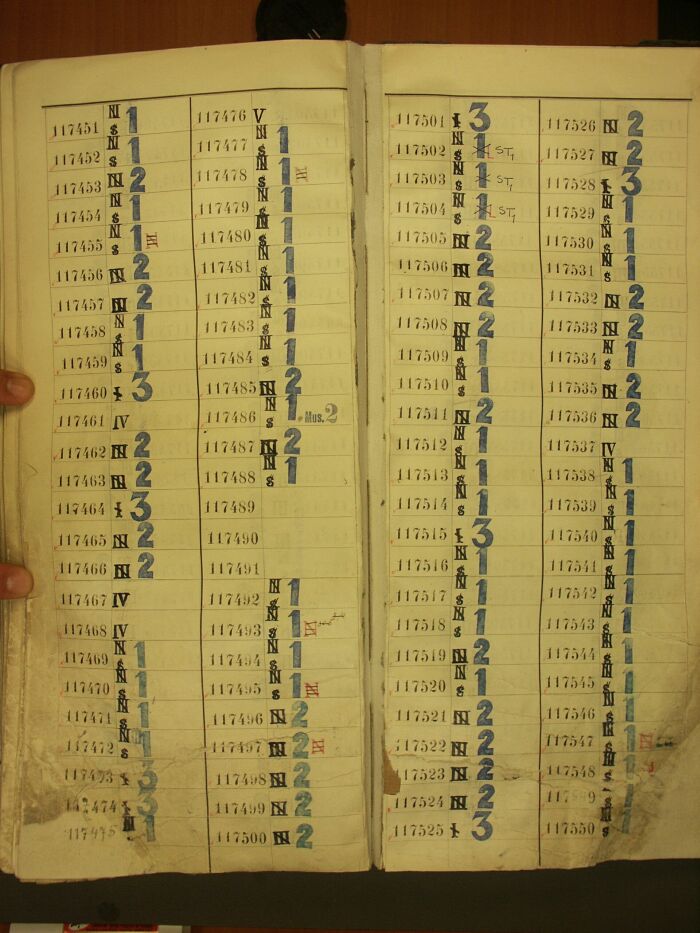 117451 N s 1
117452 N s 1
117453 N 2
117454 N s 1
117455 N s 1
117456 N 2
117457 N 2
117458 N s 1
117459 N s 1
117460 3
117461 IV
117462 N 2
117463 N 2
117464 3
117465 N 2
117466 N 2
117467 IV
117468 IV
117469 N s 1
117470 N s 1
117471 N s 1
117472 N s 1
117473 3
117474 3
117475 N 1
117476 V
117477 N s 1
117478 N s 1
117479 N s 1
117480 N s 1
117481 N s 1
117482 N s 1
117483 N s 1
117484 N s 1
117485 N 2
117486 N s 1 Mus. 2
117487 N 2
117488 N s 1
117489
117490
117491
117492 N s 1
117493 N s 1
117494 N s 1
117495 N s 1
117496 N 2
117497 N 2
117498 N 2
117499 N 2
117500 N 2
117501 3
117502 N s 1 ST1
117503 N s 1 ST1
117504 N s 1 ST1
117505 N 2
117506 N 2
117507 N 2
117508 N 2
117509 N s 1
117510 N s 1
117511 N 2
117512 N s 1
117513 N s 1
117514 N s 1
117515 3
117516 N s 1
117517 N s 1
117518 N s 1
117519 N 2
117520 N s 1
117521 N 2
117522 N 2
117523 N 2
117524 N 2
117525 3
117526 N 2
117527 N 2
117528 3
117529 N s 1
117530 N s 1
117531 N s 1
117532 N 2
117533 N 2
117534 N s 1
117535 N 2
117536 N 2
117537 IV
117538 N s 1
117539 N s 1
117540 N s 1
117541 N s 1
117542 N s 1
117543 N s 1
117544 N s 1
117545 N s 1
117546 N s 1
117547 N s 1
117548 N s 1
N s 1
117550 N s 1